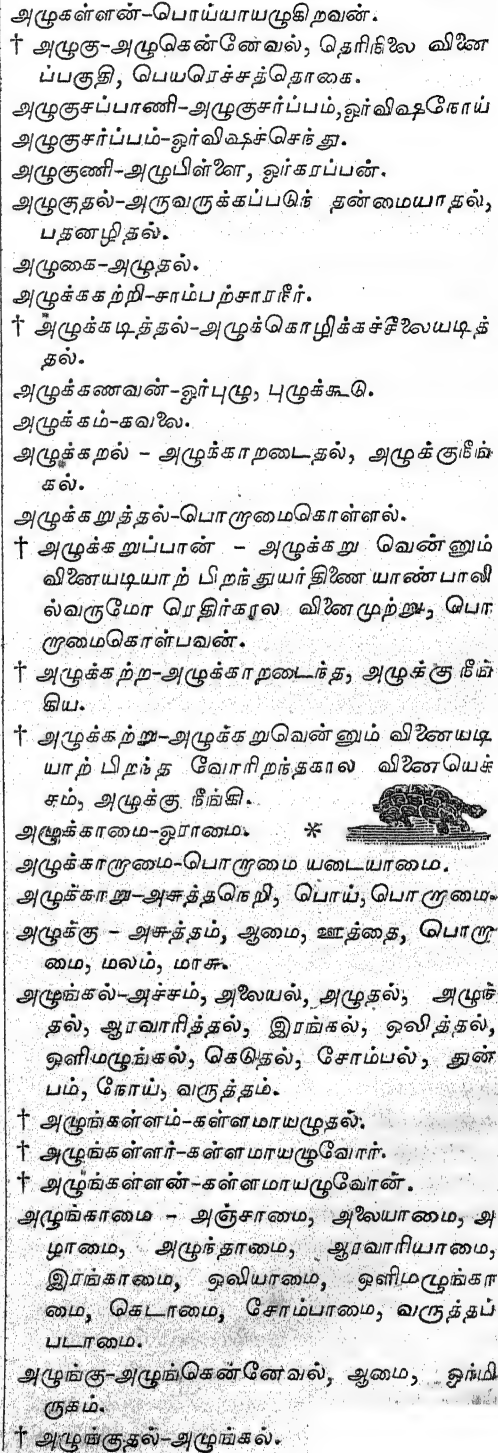 அழுகள்ளன்-பொய்யாயழுகிறவன்.
† அழுகு-அழுகென்னேவல், தெரிநிலை வினை
ப்பகுதி, பெயரெச்சத்தொகை.
அழுகுசப்பாணி-அழுகுசர்ப்பம்,ஓர்விஷநோய்
அழுகுசர்ப்பம்-ஓர்விஷச்செந்து.
அழுகுணி-அழுபிள்ளை, ஓர்கரப்பன்.
அழுகுதல்-அருவருக்கப்படுந் தன்மையாதல்,
பதனழிதல்.
அழுகை-அழுதல்.
அழுக்ககற்றி-சாம்பற்சாரநீர்.
† அழுக்கடித்தல்-அழுக்கொழிக்கச்சீலையடித்
தல்.
அழுக்கணவன்-ஓர்புழு, புழுக்கூடு.
அழுக்கம்-கவலை.
அழுக்கறல் - அழுக்காறடைதல், அழுக்குநீங்
கல்.
அழுக்கறுத்தல்-பொறாமைகொள்ளல்.
† அழுக்கறுப்பான் - அழுக்கறு வென்னும்
வினையடியாற் பிறந்துயர்திணை யாண்பாலி
ல்வருமோ ரெதிர்கால வினைமுற்று, பொ
றாமைகொள்பவன்.
† அழுக்கற்ற-அழுக்காறடைந்த, அழுக்கு நீங்
கிய.
† அழுக்கற்று-அழுக்கறுவென்னும் வினையடி
யாற் பிறந்த வோரிறந்தகால வினையெச்
சம், அழுக்கு நீங்கி.
அழுக்காமை-ஓராமை. *
அழுக்காறாமை-பொறாமை யடையாமை.
அழுக்காறு-அசுத்தநெறி, பொய்,பொறாமை.
அழுக்கு - அசுத்தம், ஆமை, ஊத்தை, பொறா
மை, மலம், மாசு.
அழுங்கல்-அச்சம், அலையல், அழுதல், அழுந்
தல், ஆரவாரித்தல், இரங்கல், ஒலித்தல்,
ஒளிமழுங்கல், கெடுதல், சோம்பல், துன்
பம், நோய், வருத்தம்.
† அழுங்கள்ளம்-கள்ளமாயழுதல்.
† அழுங்கள்ளர்-கள்ளமாயழுவோர்.
† அழுங்கள்ளன்-கள்ளமாயழுவோன்.
அழுங்காமை - அஞ்சாமை, அலையாமை, அ
ழாமை, அழுந்தாமை, ஆரவாரியாமை,
இரங்காமை, ஒலியாமை, ஒளிமழுங்கா
மை, கெடாமை, சோம்பாமை, வருத்தப்
படாமை.
அழுங்கு-அழுங்கென்னேவல், ஆமை, ஓர்மி
ருகம்.
† அழுங்குதல்-அழுங்கல்.